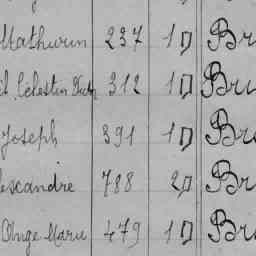 Mathurin 237 1 D Br
Célestin 312 1 D Bru
Joseph 391 1 D Br
lexandre 788 2 D Br
Ange Marie 479 1 D Br